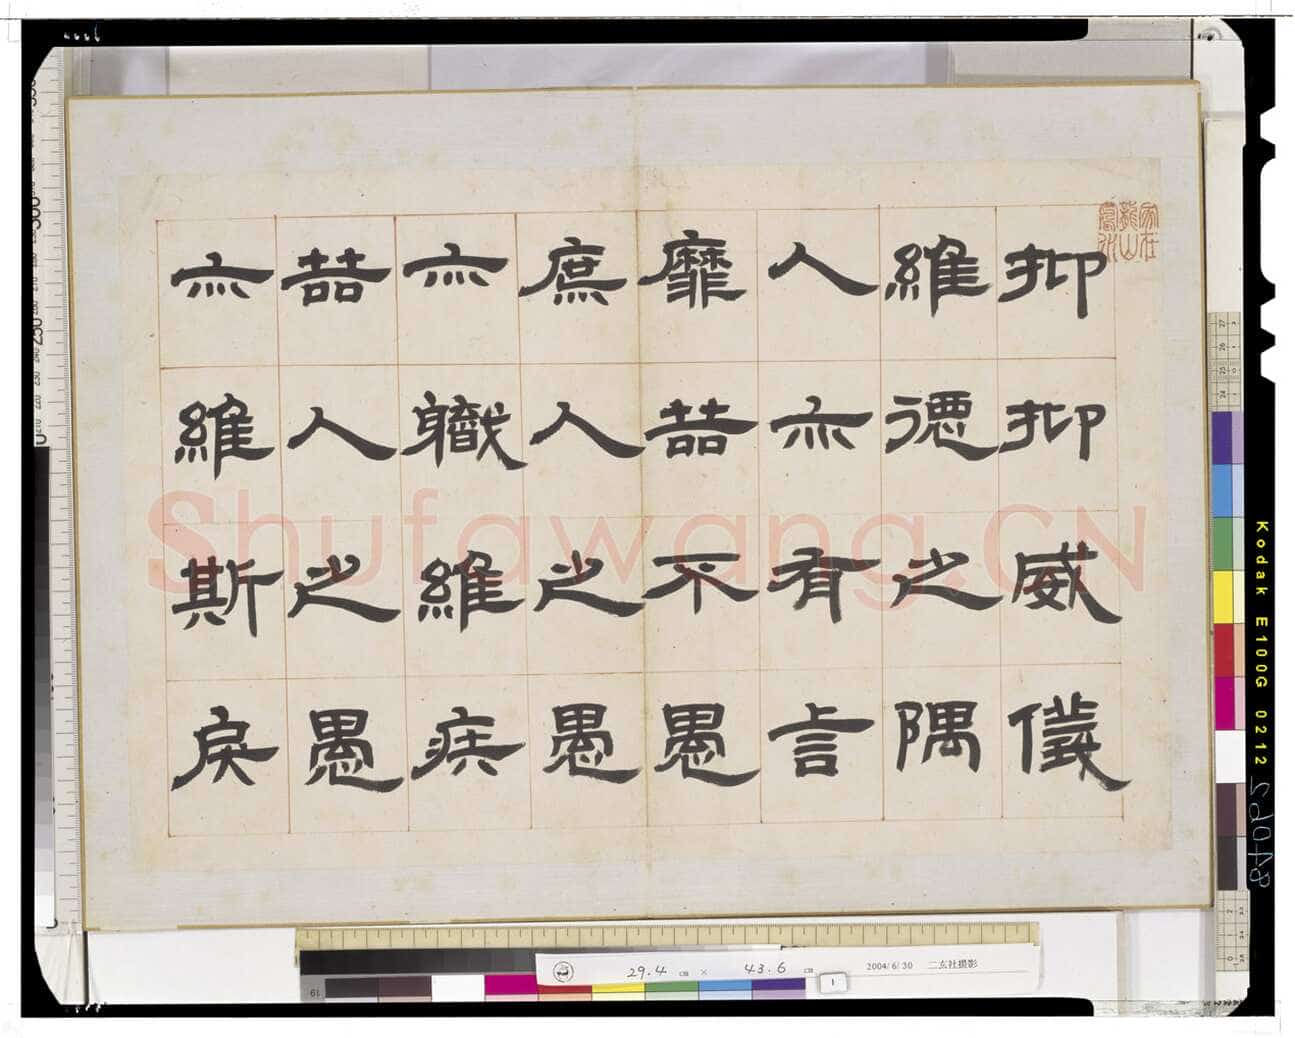 抑抑威儀
維德之隅
人亦有言
靡喆不愚
庶人之愚
亦職維疾
喆人之愚
亦維斯戾
Shufawang.CN
Kodak E100G 0212
29.4 cm × 43.6 cm
2004/6/30 二玄社撮影
1